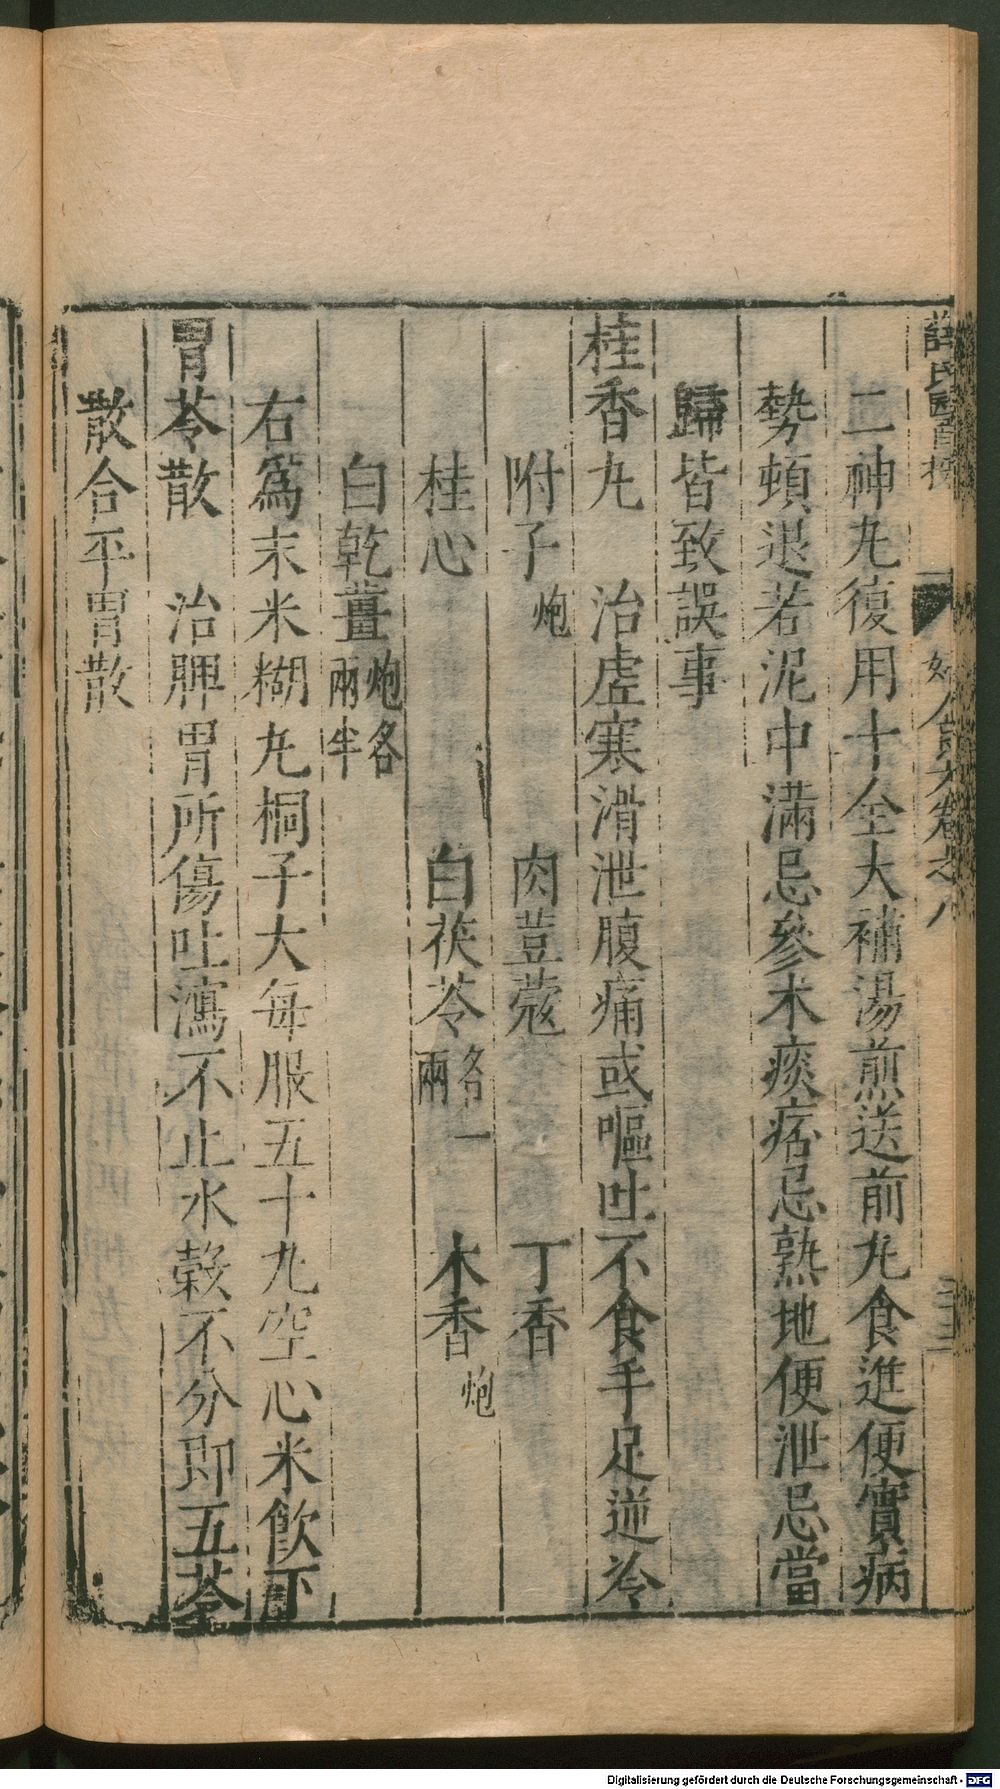 二神丸復用十全大補湯煎送前丸食進便實病
勢頓退若泥中滿忌參朮痰痞忌熟地便泄忌當
歸皆致誤事
桂香丸　治虛寒滑泄腹痛或嘔吐不食手足逆冷
附子炮　肉荳蔻　丁香
桂心　白茯苓各一兩　木香炮
白乾薑炮各兩半
右爲末米糊丸桐子大每服五十丸空心米飲下
胃苓散　治脾胃所傷吐瀉不止水榖不分即五苓
散合平胃散
Digitalisierung gefördert durch die Deutsche Forschungsgemeinschaft - DFG